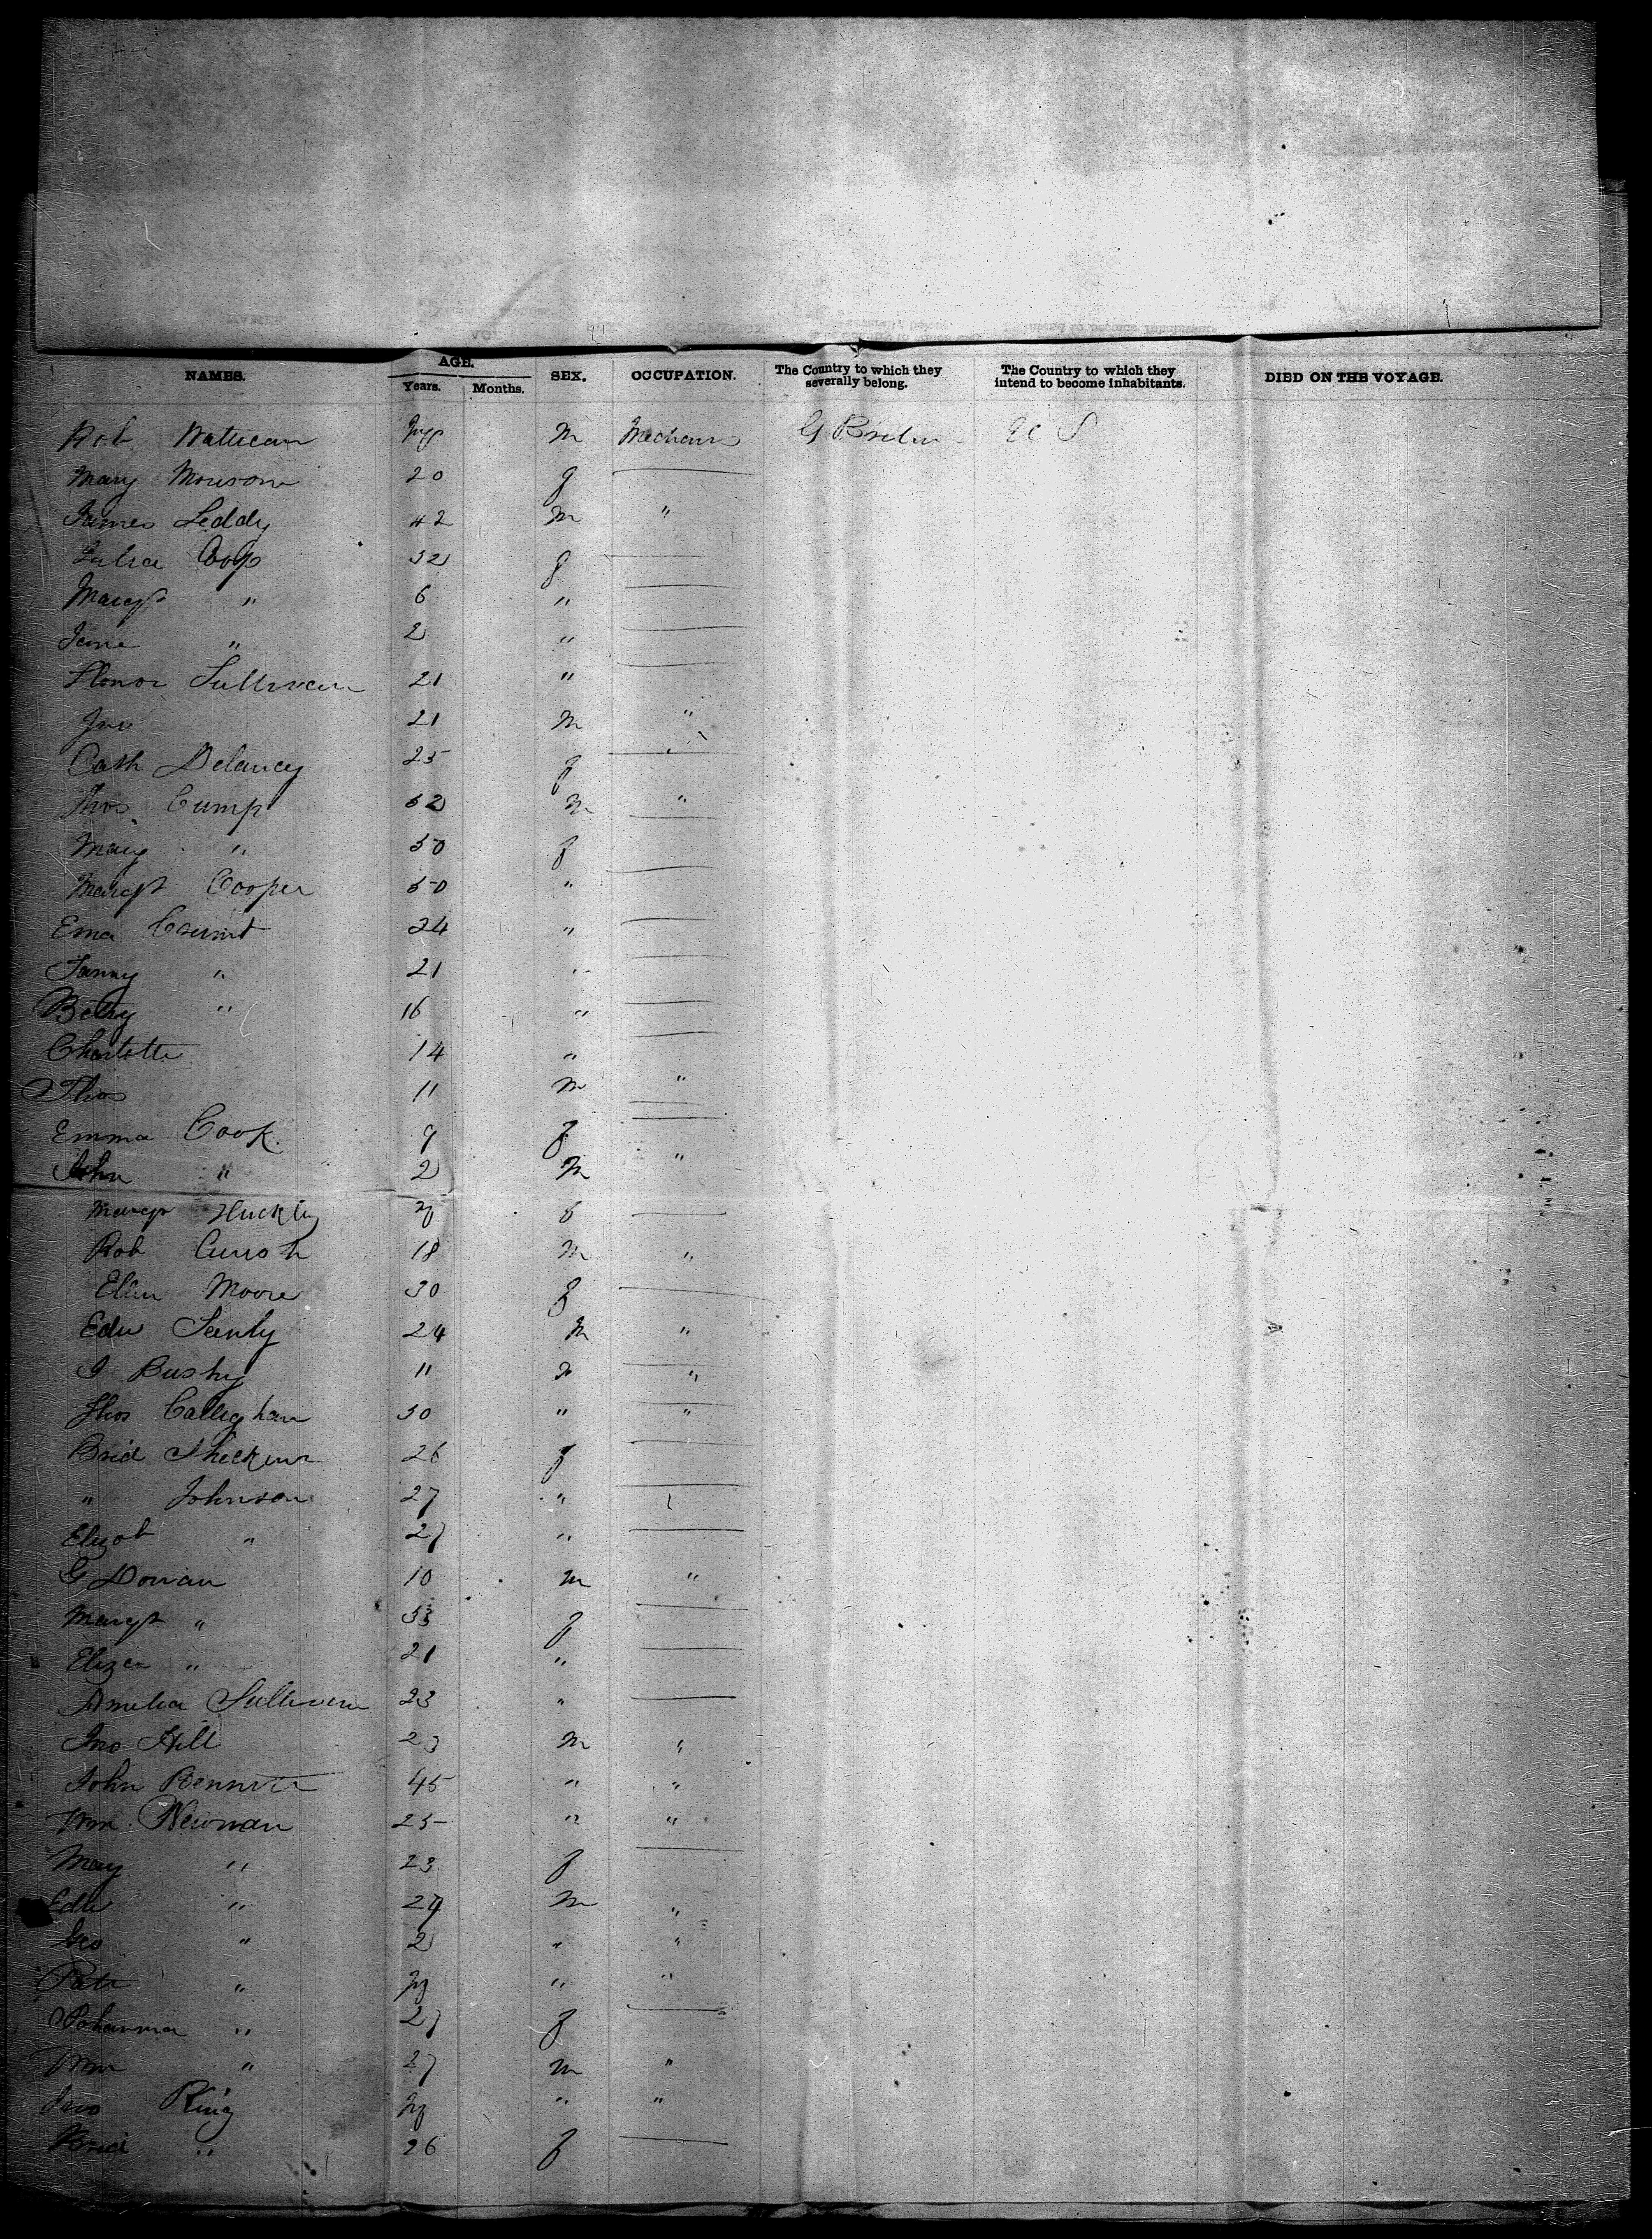 NAMES. AGE. Years. Months. SEX. OCCUPATION. The Country to which they severally belong. The Country to which they intend to become inhabitants. DIED ON THE VOYAGE.
Rob M G Britn U S
Mary 20 f
James Leddy 42 M "
Coop 32 f
Margt " 6 "
Jane " 2 "
Honor Sullivan 21 "
Jno 21 M "
Cath Delaney 25 f
Thos. Cump 52 M "
Mary " 50 f
Margt Cooper 50 "
Ema 24 "
Fanny " 21 "
Betsy " 16 "
Charlotte 14 "
Thos 11 M "
Emma Cook 9 f
John " 2 M "
Margt f
Rob 18 M "
Ellen Moore 30 f
Edw 24 M "
J Bushy 11 "
Thos Callighan 30 " "
Brid 26 f
" Johnson 27 "
Elizab " 27 "
G Dorian 10 M "
Margt " 33 f
Eliza " 21 "
Amelia Sullivan 23 "
Jno Hill 23 M "
John Bennett 45 " "
Wm Newman 25 " "
Mary " 23 f
Edw " M "
Geo " 2 " "
Patr " " "
Johanna " 27 f
Wm " 27 M "
Jno King " "
Brid " 26 f